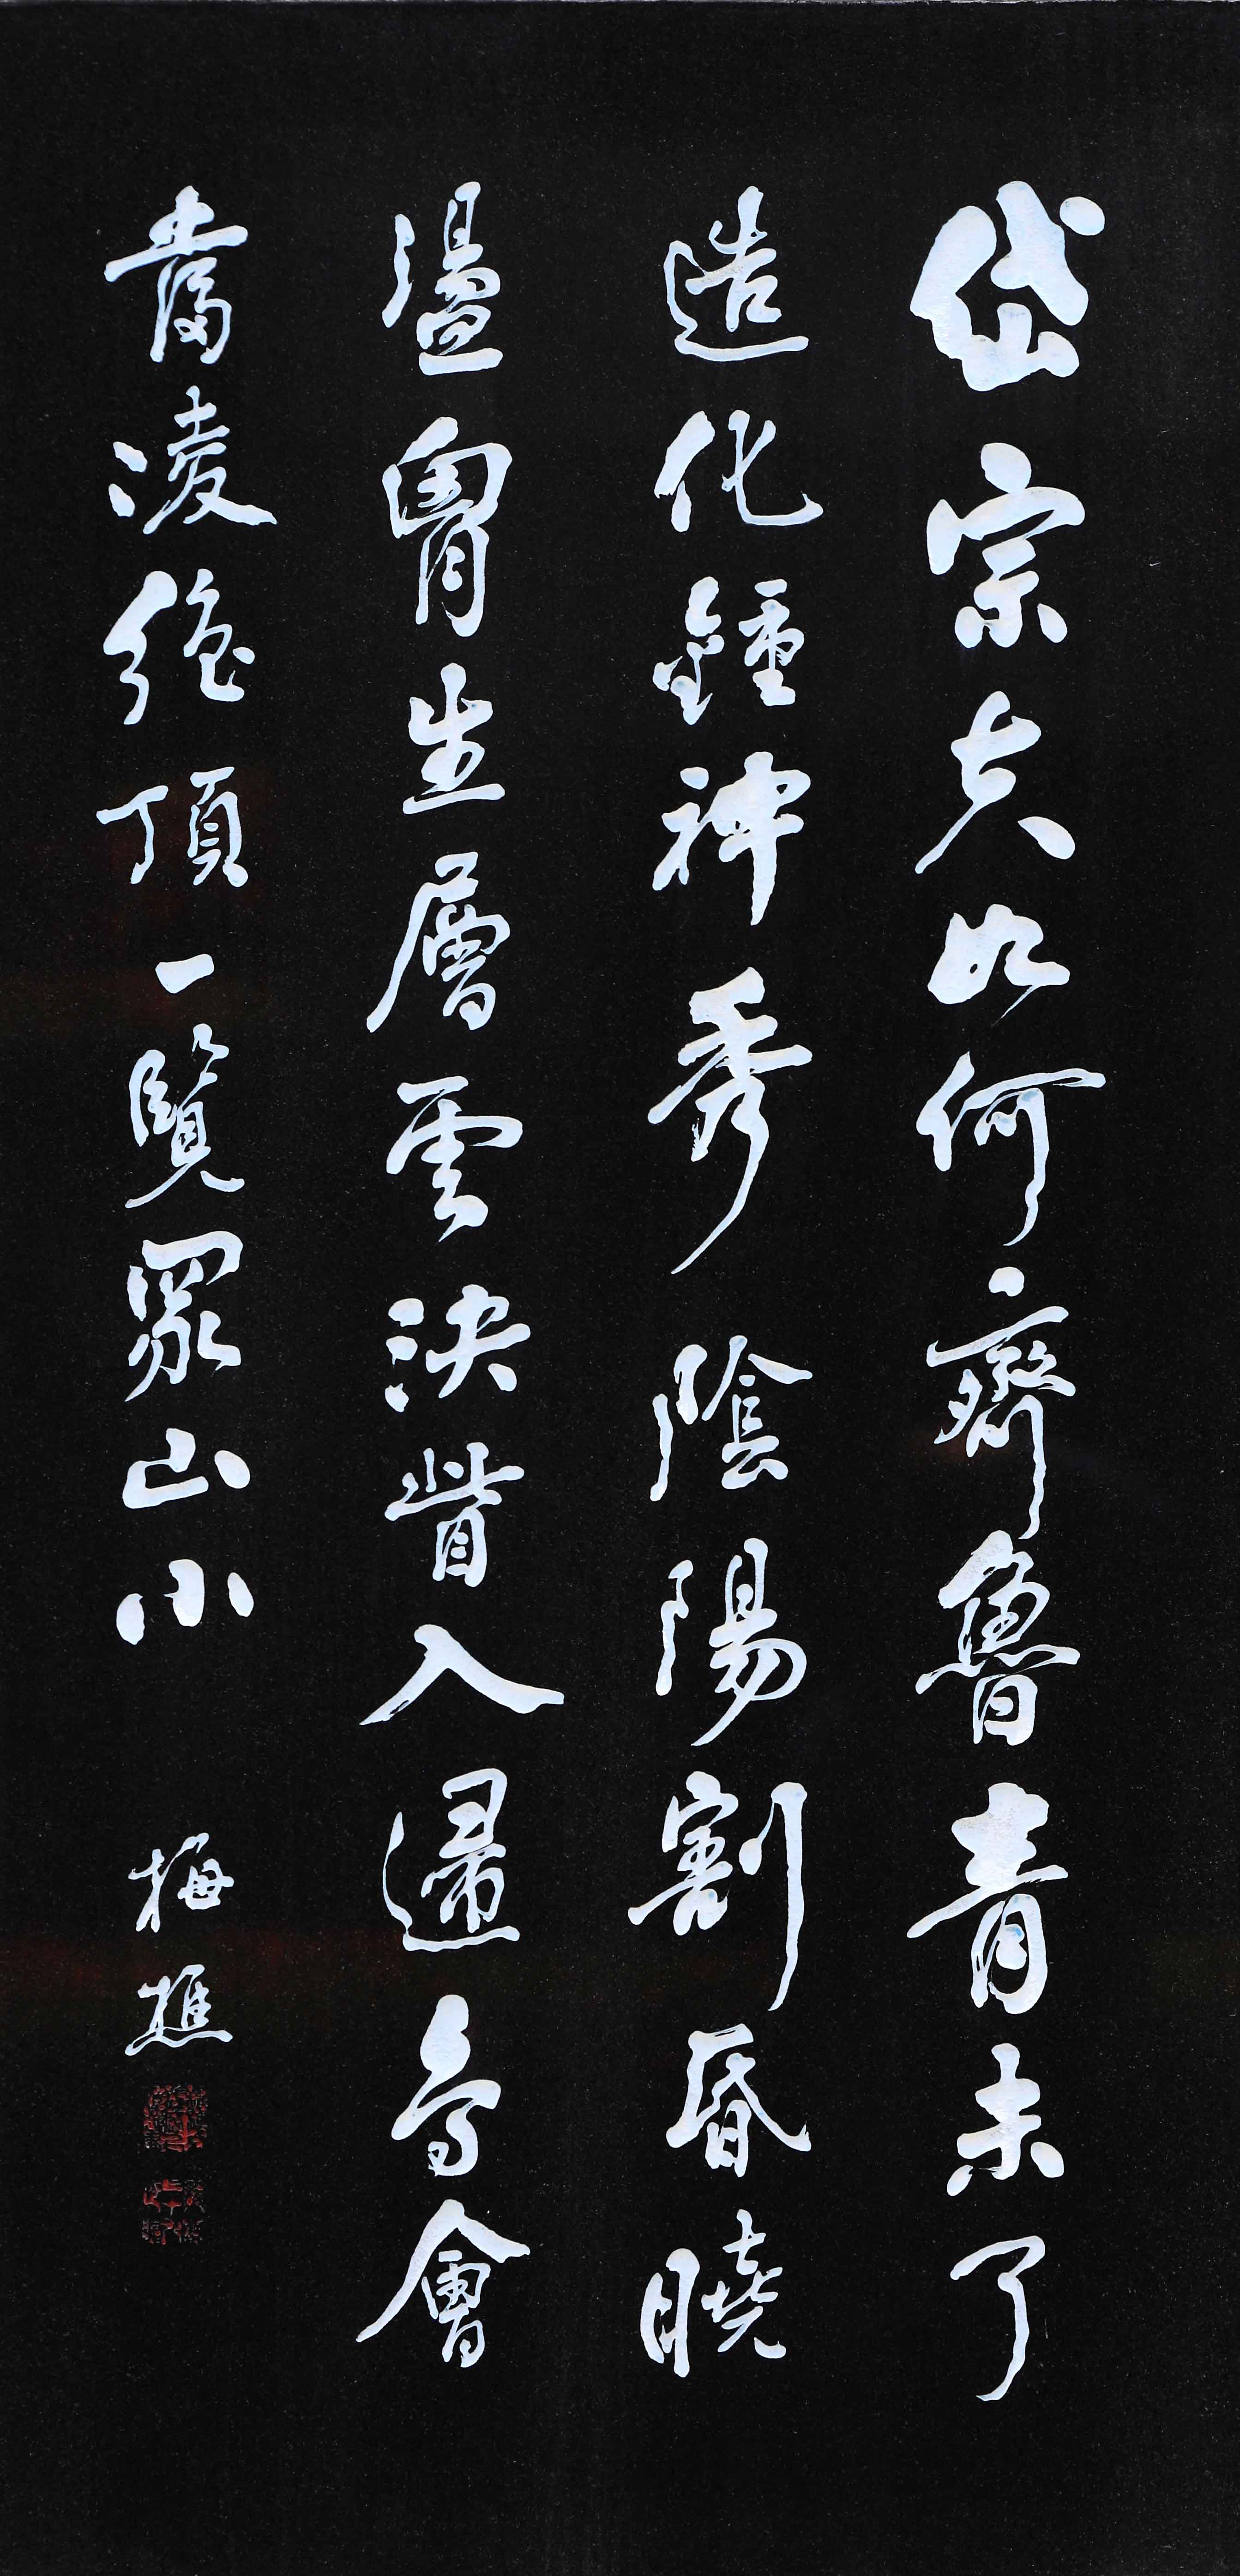 岱宗夫如何齊魯青未了
造化鍾神秀陰陽割昏曉
盪胷生層雲決眥入歸鳥會
當凌絕頂一覽眾山小
梅樵